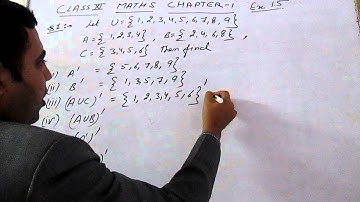 CLASS XI MATHS CHAPTER-1 Ex 1.5
Q1:- Let U = {1, 2, 3, 4, 5, 6, 7, 8, 9}
A = {1, 2, 3, 4}, B = {2, 4, 6, 8},
C = {3, 4, 5, 6} Then find
A' = {5, 6, 7, 8, 9}
(ii) B' = {1, 3, 5, 7, 9}
(iii) (AUC)' = {1, 2, 3, 4, 5, 6}'
(iv) (AUB)'
)'